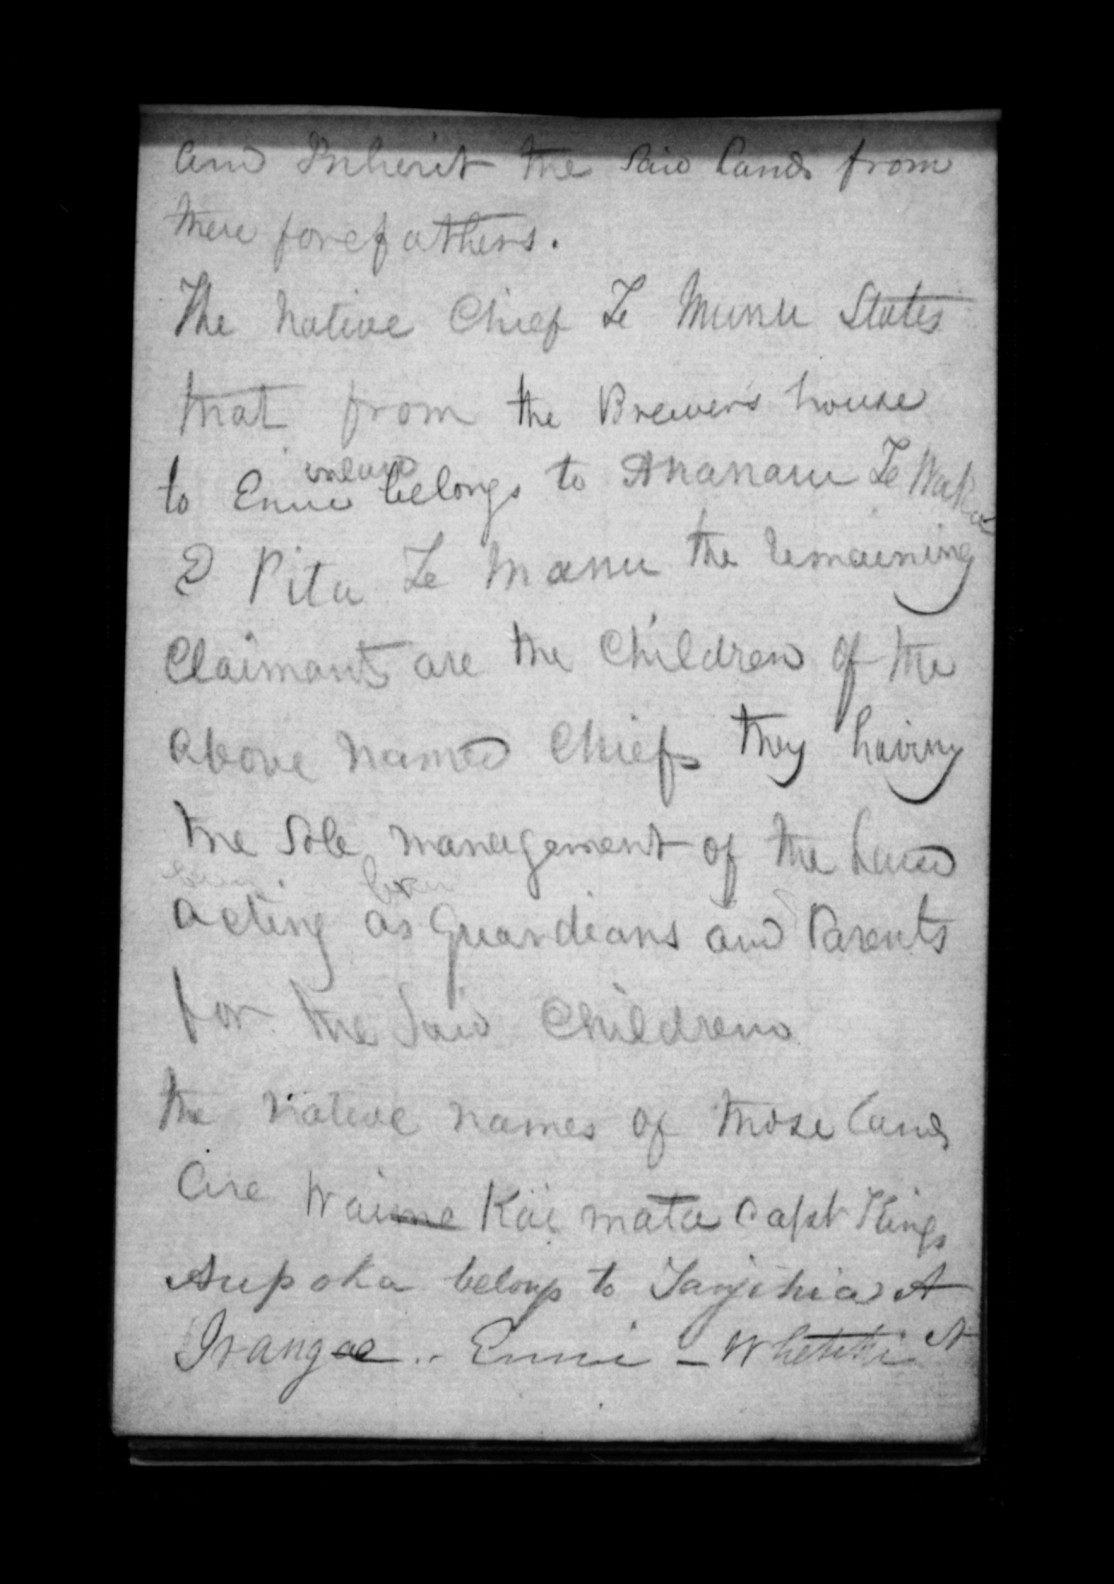 and Inherit the said Lands from
there forefathers.
The Native Chief Te Munu States
that from the Brewers house
to Enui inland belongs to Te Waka
& Pitu Te Manu the remaining
Claimants are the Children of the
above named Chiefs they having
the Sole management of the Land
acting as Guardians and Parents
for the Said Children
the Native names of those Lands
are Kai mata Capt Kings
Aupoka belongs to A
Enui -